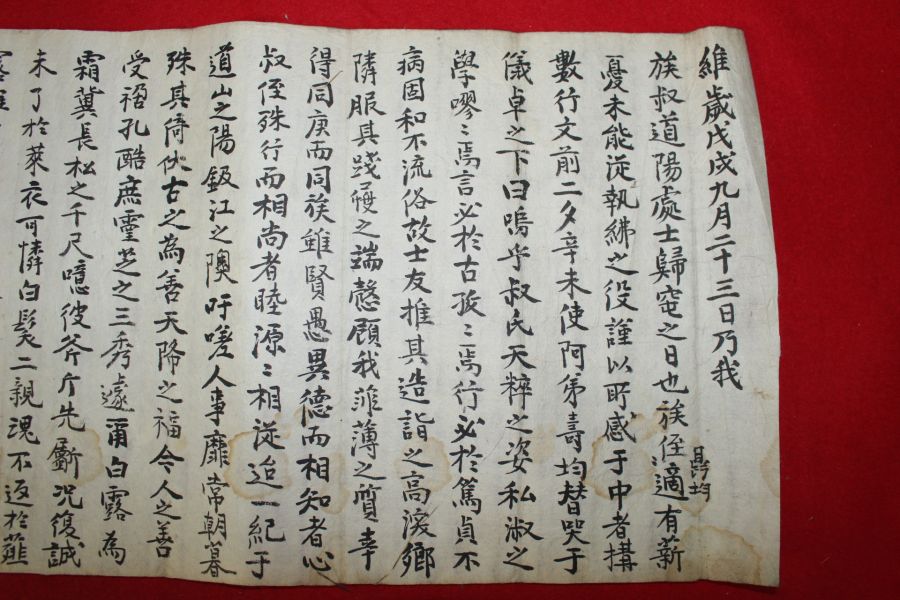 維歲戊戌九月二十三日乃我
族叔道陽處士歸窆之日也族侄昺均適有薪
憂未能從執紼之役謹以所感于中者搆
數行文前二夕辛未使阿弟壽均替哭于
儀卓之下曰嗚乎叔氏天粹之姿私淑之
學嘐〻焉言必於古孜〻焉行必於篤貞不
病固和不流俗故士友推其造詣之高深鄉
隣服其踐履之端慤顧我菲薄之質幸
得同庚而同族雖賢愚異德而相知者心
叔侄殊行而相尚者睦源〻相從迨一紀于
道山之陽鈒江之隩吁嗟人事靡常朝暮
殊其倚伏古之為善天降之福今人之善
受禍孔酷庶靈芝之三秀遽甭白露為
霜冀長松之千尺噫彼斧斤先斸况復誠
未了於萊衣可憐白髮二親魂不返於薤